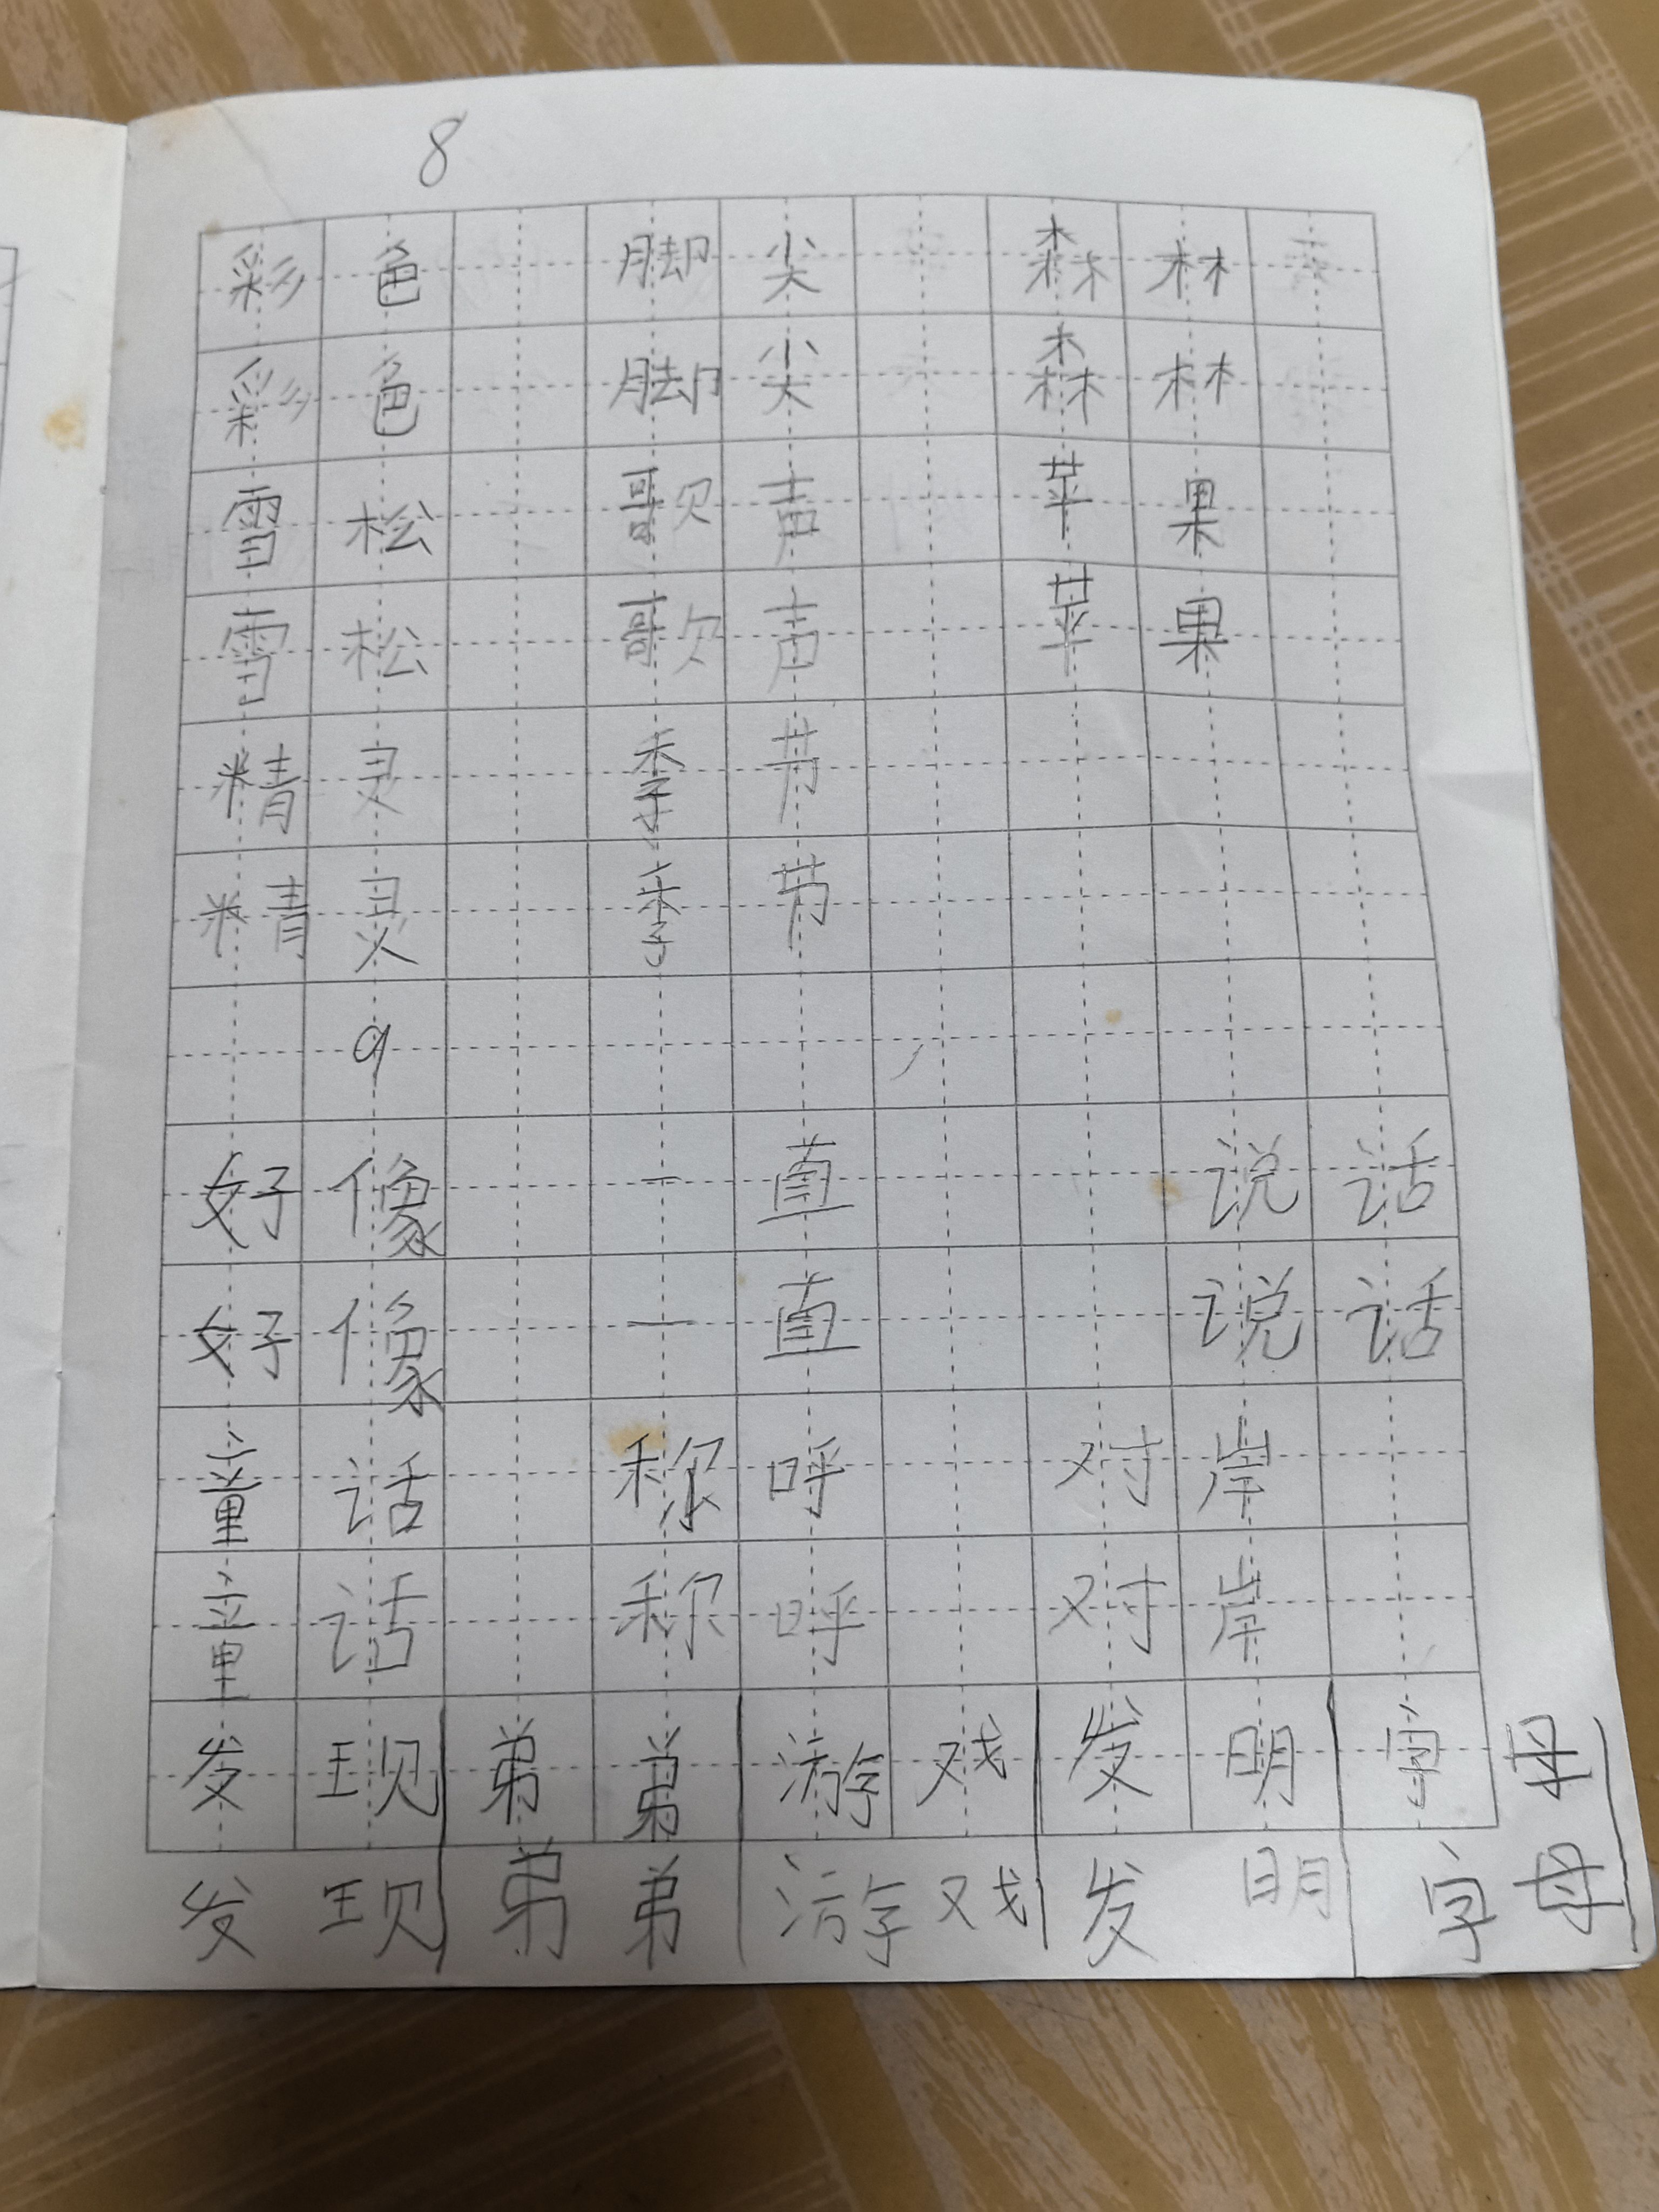 8
彩色 脚尖 森林
彩色 脚尖 森林
雪松 歌声 苹果
雪松 歌声 苹果
精灵 季节
精灵 季节
9
好像 一直 说话
好像 一直 说话
童话 称呼 对岸
童话 称呼 对岸
发现 弟弟 游戏 发明 字母
发现 弟弟 游戏 发明 字母